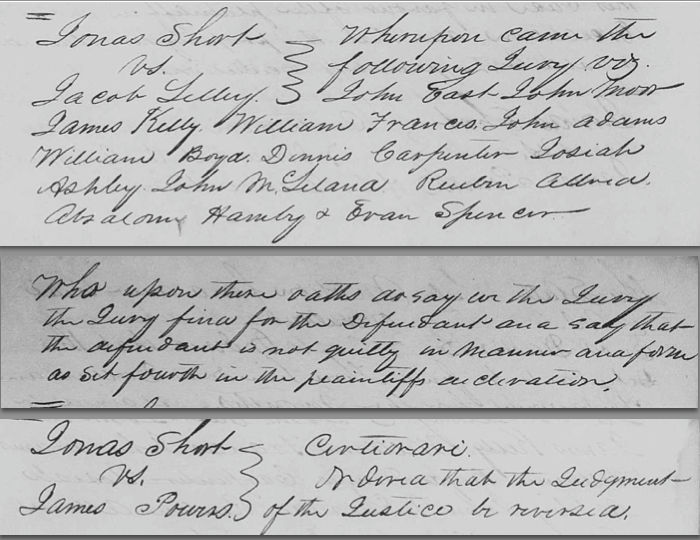 Jonas Short } Whereupon came the
vs. } following Jury viz.
Jacob Lilley. } John East John Moor
James Kelly. William Francis. John Adams
William Boyd. Dennis Carpenter Josiah
Ashley. John McLeland Reuben Allred.
Absalom Hamby & Evan Spencer
Who upon there oaths do say we the Jury
the Jury find for the Defendant and say that
the defendant is not guilty in manner and form
as set fourth in the plaintiffs declaration.
Jonas Short } Certiorari.
vs. } Ordered that the Judgment
James Powers. } of the Justice be reversed.